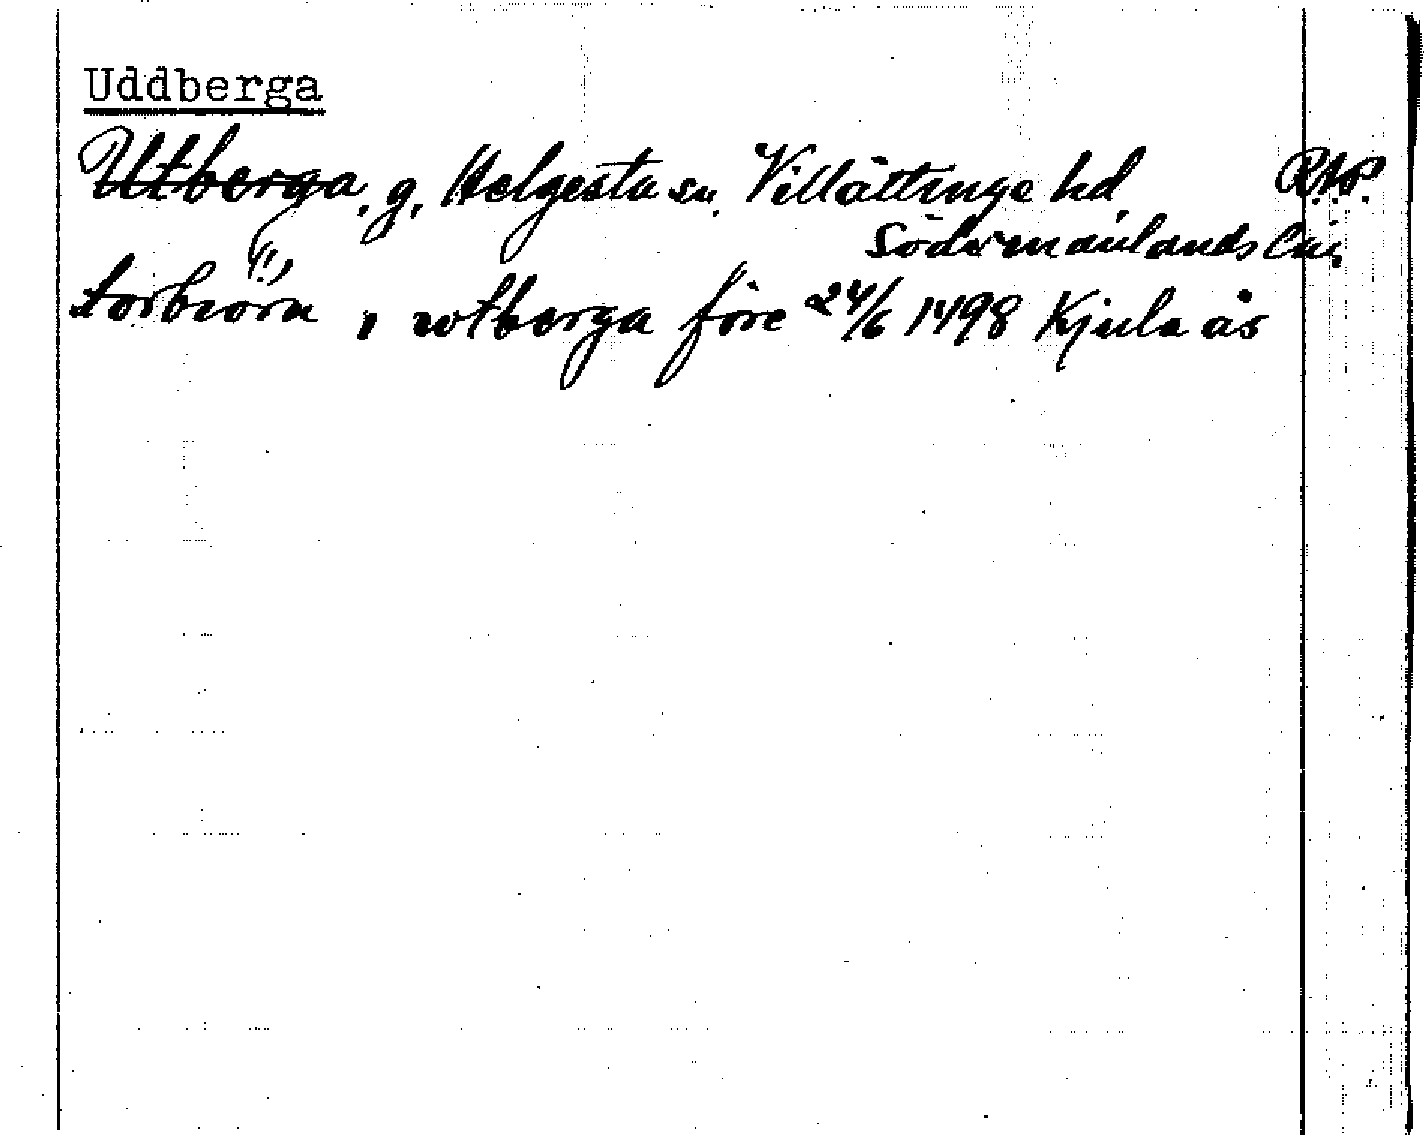 Uddberga
Utberga, g, Helgesta sn. Villåttinge hd R.A.P.
Södermanlands län
torbiörn (!), i wtberga före 24/6 1498 Kjula ås